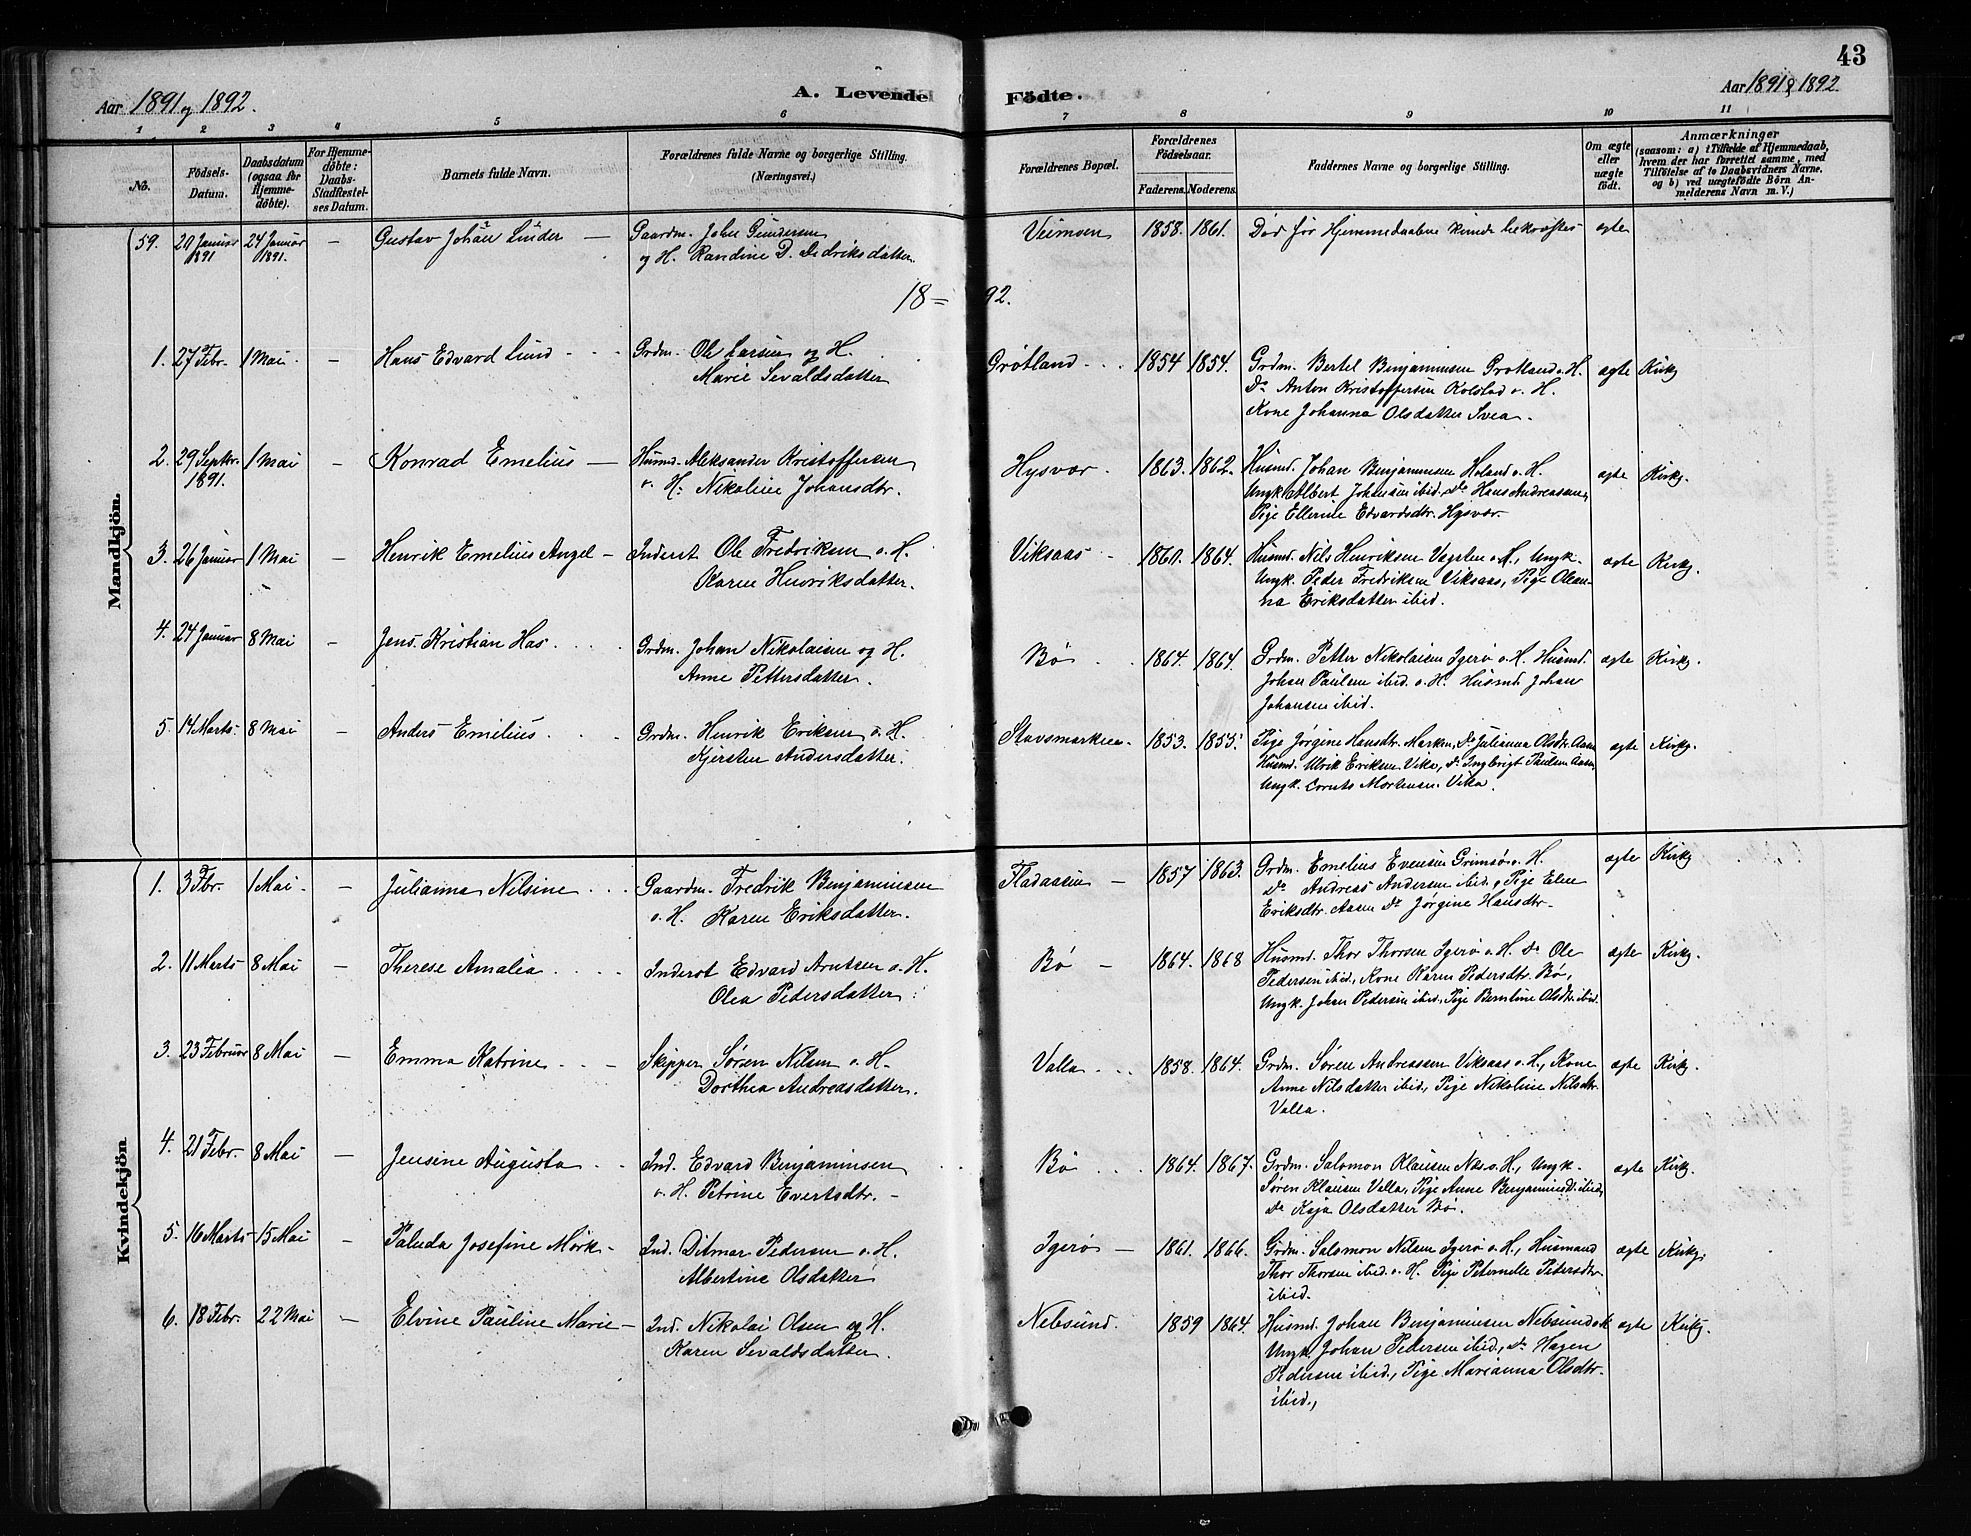 43
Aar 1891 og 1892.
A. Levendel Födte.
Aar 1891 & 1892
1 2 3 4 5 6 7 8 9 10 11
No.
Födsels-
Datum.
Daabsdatum
(ogsaa for
Hjemme-
döbte).
For Hjemme-
döbte:
Daabs-
Stadfæstel-
ses Datum.
Barnets fulde Navn.
Forældrenes fulde Navne og borgerlige Stilling.
(Næringsvei.)
Forældrenes Bopæl.
Forældrenes
Födselsaar.
Faderens. Moderens.
Faddernes Navne og borgerlige Stilling.
Om ægte
eller
uægte
födt.
Anmærkninger
(saasom: a) i Tilfælde af Hjemmedaab,
hvem der har forrettet samme, med
Tilföielse af to Daabsvidners Navne.
og b) ved uægtefödte Börn An-
melderens Navn m. V.)
Mandkjön.
59. 20 Januar 24 Januar — Gustav Johan Linder — Gaardm. John Gundersen Veimsen 1858. 1861. Død før Hjemmedaaben kunde bekræftes ægte
1891 1891. og H. Randine D. Didriksdatter.
18 = 92.
1. 27 Febr. 1 Mai. — Hans Edvard Lund Grdm. Ole Larsen og H. Grøtland 1854 1854. Grdm. Bertel Benjaminsen Grøtland o. H. ægte Kirkg
Marie Sevaldsdatter Do Anton Kristoffersen Kolstad o. H.
Kone Johanna Olsdatter Svea.
2. 29 Septbr. 1 Mai — Konrad Emelius — Husmd. Aleksander Kristoffersen Hysvær 1863. 1862. Husmd. Johan Benjaminsen Holand o. H. ægte Kirkg.
1891. o. H. Nikoline Johansdtr. Ungk. Albert Johansen ibid. Do Hans Andreassen,
Pige Ellerine Edvardsdtr. Hysvær.
3. 26 Januar 1 Mai — Henrik Emelius Angel — Inderst Ole Fredriksen o. H. Viksaas 1860. 1864. Husmd. Nils Henriksen Vågelen o. H., Ungk. ægte Kirkg.
Karen Henriksdatter. Ungk. Peder Fredriksen Viksaas, Pige Olean-
na Eriksdatter ibid.
4. 24 Januar 8 Mai — Jens Kristian Has Grdm. Johan Nikolaisen og H. Bø 1864. 1864. Grdm. Petter Nikolaisen Igerø o. H. Husmd. ægte Kirkg.
Anne Pettersdatter. Johan Paulsen ibid. o. H. Husmd. Johan
Johansen ibid.
5. 14 Marts. 8 Mai Anders Emelius Grdm. Henrik Eriksen o. H. Stavsmarken 1853. 1855. Pige Jørgine Hansdtr. Marken, Do Julianna Olsdtr. Aasen ægte Kirkg.
Kjersten Andersdatter. Husmd. Ulrik Eriksen Vika, Do Ingbrigt Paulsen Aasen,
Ungk. Cornts Mortensen Vika.
Kvindekjön.
1. 3 Fbr. 1 Mai — Julianna Nilsine Gaardm. Fredrik Benjaminsen Fladaasen — 1857 1863. Grdm. Emelius Evensen Grimsø o. H. ægte Kirkg
o. H. Karen Eriksdatter. Do Andreas Andersen ibid, Pige Elen
Eriksdtr. Aasen Do Jørgine Hansdtr.
2. 11 Marts 8 Mai — Therese Amalia Inderst Edvard Arntsen o. H. Bø — 1864. 1868 Husmd. Thor Thorsen Igerø o. H. Do Ole ægte Kirkg.
Olea Pedersdatter. Pedersen ibid., Kone Karen Pedersdtr. Bø,
Ungk. Johan Pedersen ibid., Pige Berntine Olsdtr. ibid.
3. 23 Februar 8 Mai — Emma Katrine Skipper Søren Nilsen o. H. Valla 1858. 1864. Grdm. Søren Andreassen Viksaas o. H., Kone ægte Kirkg.
Dorthea Andreasdatter. Anne Nilsdatter ibid., Pige Nikoline Nilsdtr.
Valla.
4. 21 Febr. 8 Mai — Jensine Augusta Ind. Edvard Benjaminsen Bø 1864. 1867. Grdm. Salomon Klausen Næs o. H., Ungk. ægte Kirkg.
o. H. Petrine Evertsdtr. — Søren Klausen Valla, Pige Anne Benjaminsd. ibid,
Do Kaja Olsdatter Bø.
5. 16 Marts 15 Mai — Paluda Josefine Mørk Ind. Ditmar Pedersen o. H. Igerø — 1861. 1866. Grdm. Salomon Nilsen Igerø o. H., Husmand ægte Kirkg.
Albertine Olsdatter Thor Thorsen ibid. o. H. Pige Peternelle Petersdtr.
ibid.
6. 18 Febr. 22 Mai — Elvine Pauline Marie — Ind. Nikolai Olsen og H. Nebsund. 1859 1864. Husmd. Johan Benjaminsen Nebsund o. H. ægte Kirkg.
Karen Sevaldsdatter. Ungk. Johan Pedersen ibid., Do Hagen
Pedersen ibid., Pige Marianna Olsdtr.
ibid.,